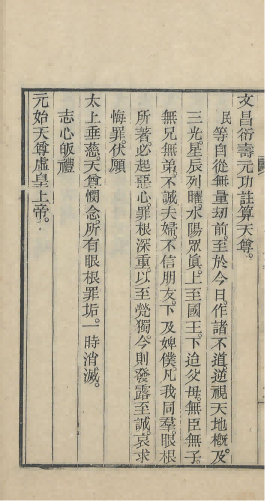 文昌衍壽元功註算天尊。
民等自從無量刼前至於今日。作諸不道。逆視天地。槪及
三光。星辰列曜。水陽眾眞。上至國王。下迨父母。無臣無子。
無兄無弟。不誠夫婦。不信朋友。下及婢僕。凡我同羣。眼根
所著。必起惡心。罪根深重。以至煢獨。今則發露至誠。哀求
悔罪。伏願
太上垂慈。天尊憫念。所有眼根罪垢。一時消滅。
志心皈禮
元始天尊虛皇上帝。